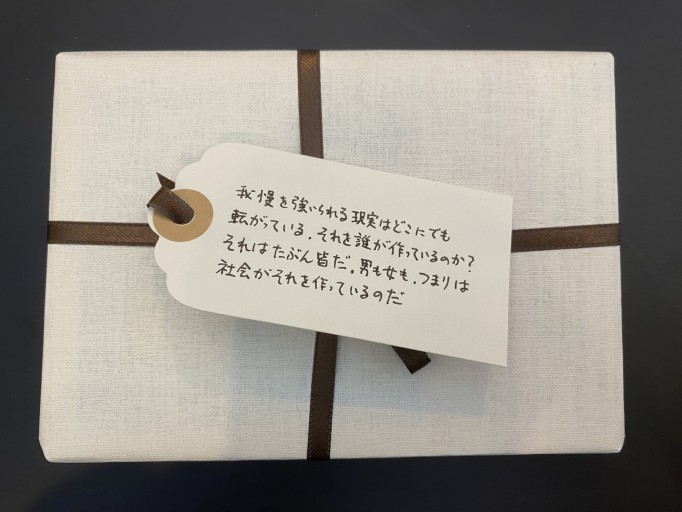 我慢を強いられる現実はどこにでも
転がっている。それを誰が作っているのか?
それはたぶん皆だ。男も女も。つまりは
社会がそれを作っているのだ